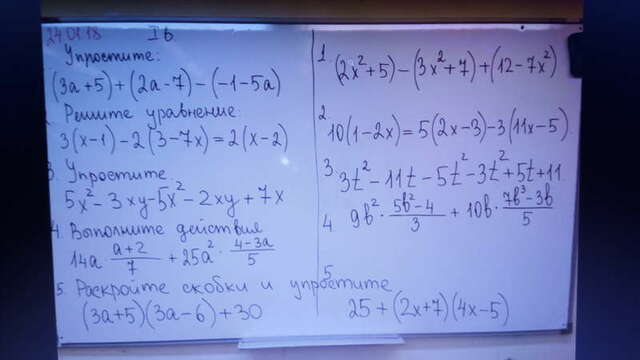 24.01.18 I б
Упростите:
(3a+5)+(2a-7)-(-1-5a)
2. Решите уравнение:
3(x-1)-2(3-7x)=2(x-2)
3. Упростите
5x²-3xy-5x²-2xy+7x
4. Выполните действия
14a · (a+2)/7 + 25a² · (4-3a)/5
5. Раскройте скобки и упростите
(3a+5)(3a-6)+30
1. (2x²+5)-(3x²+7)+(12-7x²)
2. 10(1-2x)=5(2x-3)-3(11x-5).
3 3t²-11t-5t²-3t²+5t+11
4. 9b² · (5b²-4)/3 + 10b · (7b³-3b)/5
5. 25+(2x+7)(4x-5)